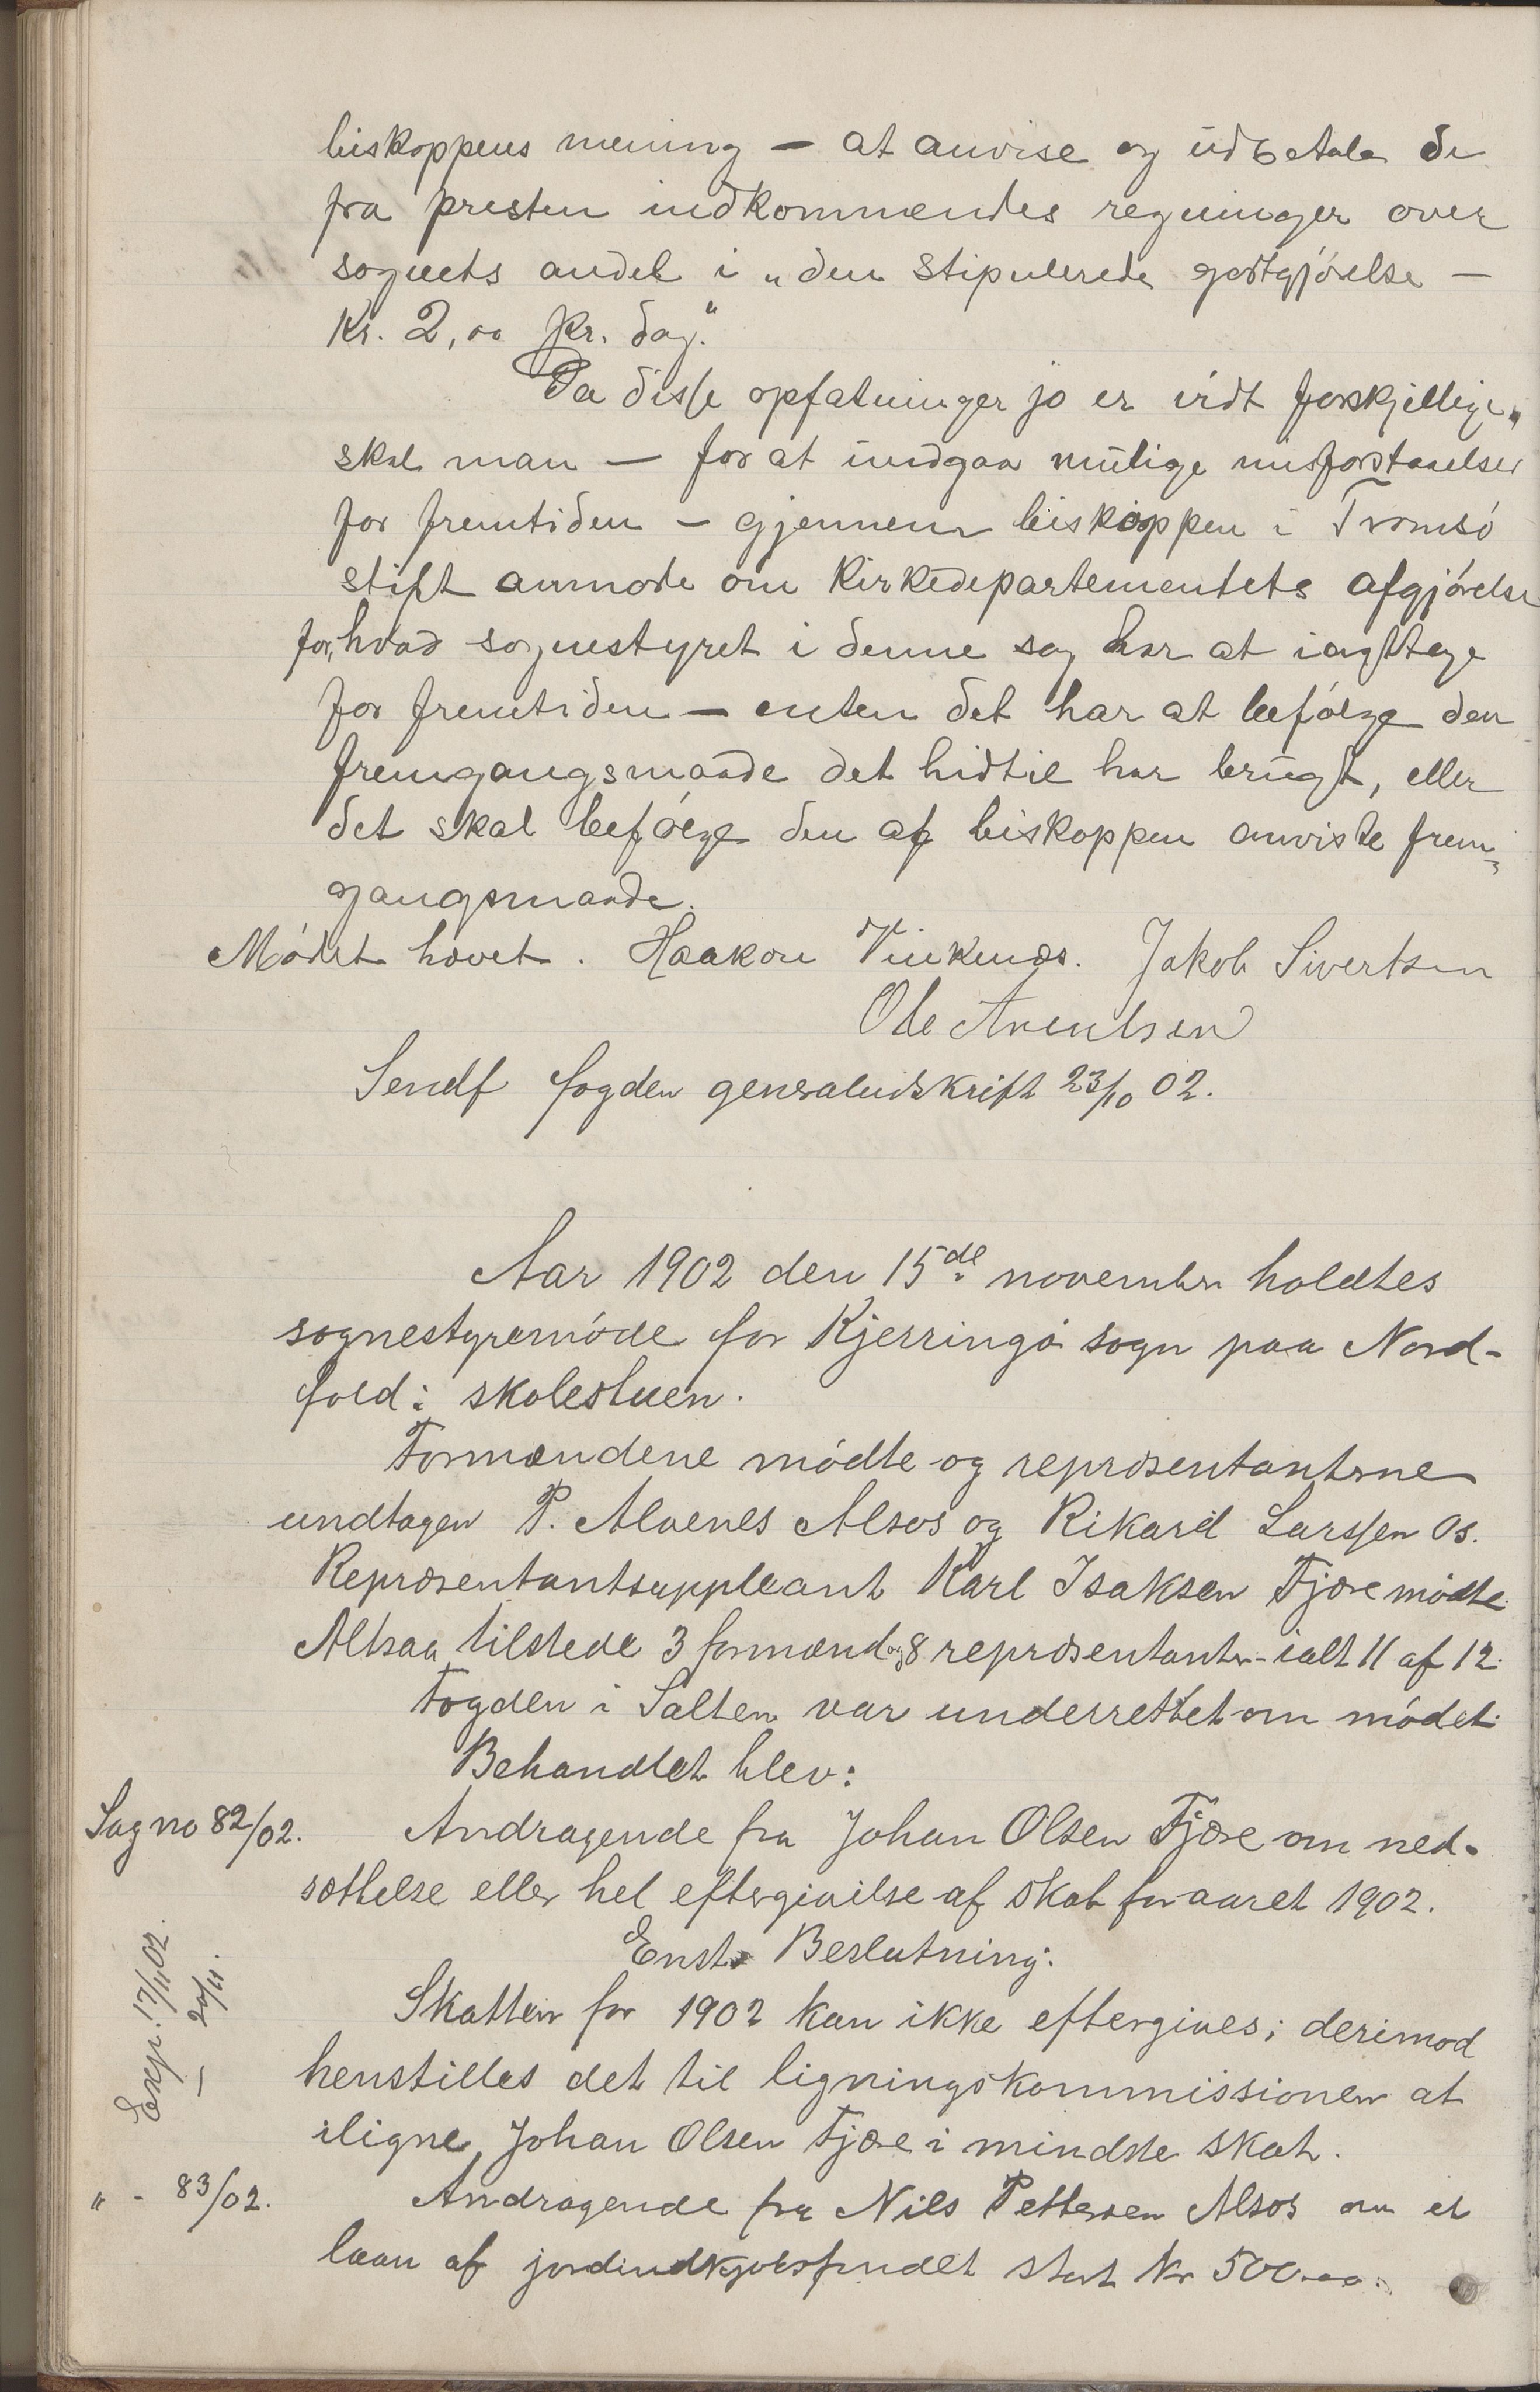 biskoppens mening — at anvise og udbetale de
fra presten indkommendes regninger over
sognets andel i „den stipulerede godtgjórelse —
Kr. 2,00 pr. dag."
Da disse opfatninger jo er vidt forskjellige,
skal man — for at undgaa mulige misforstaaelser
for fremtiden — gjennem biskoppen i Tromsó
stift anmode om Kirkedepartementets afgjórelse
for, hvad sognestyret i denne sag har at iagttage
for fremtiden — enten det har at befólge den
fremgangsmaade det hidtil har brugt, eller
det skal befólge den af biskoppen anviste frem-
gangsmaade.
Módet hævet. Haakon Vinkenæs. Jakob Sivertsen
Ole Arentsen
Sendt fogden generaludskrift 23/10 02.
Aar 1902 den 15de november holdtes
sognestyremóde for Kjerringó sogn paa Nord-
fold i skolestuen.
Formændene módte og repræsentanterne
undtagen P. Alvenes Alsos og Rikard Larssen Os.
Repræsentantsuppleant Karl Isaksen Fjære módte.
Altsaa tilstede 3 formænd og 8 repræsentanter - ialt 11 af 12.
Fogden i Salten var underrettet om módet.
Behandlet blev:
Sag no 82/02. Andragende fra Johan Olsen Fjære om ned-
sættelse eller hel eftergivilse af skat for aaret 1902.
Enst. Beslutning:
Exp. 17/11 02.
— 20/11.
Skatten for 1902 kan ikke eftergives; derimod
henstilles det til ligningskommissionen at
iligne Johan Olsen Fjære i mindste skat.
" - 83/02. Andragende fra Nils Pettersen Alsos om et
laan af jordindkjóbsfundet stort Kr 500.00.